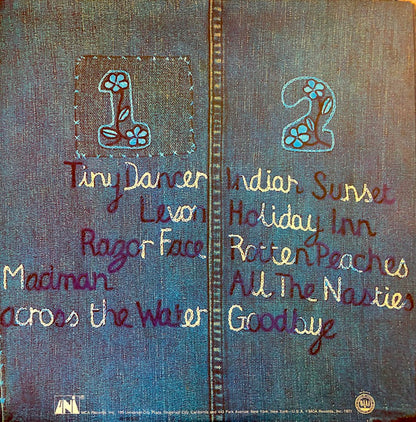 1
Tiny Dancer
Levon
Razor Face
Madman
across the Water
2
Indian Sunset
Holiday Inn
Rotten Peaches
All The Nasties
Goodbye
UNI
MCA Records, Inc., 100 Universal City Plaza, Universal City, California and 445 Park Avenue, New York, New York—U.S.A. ℗ MCA Records, Inc. 1971